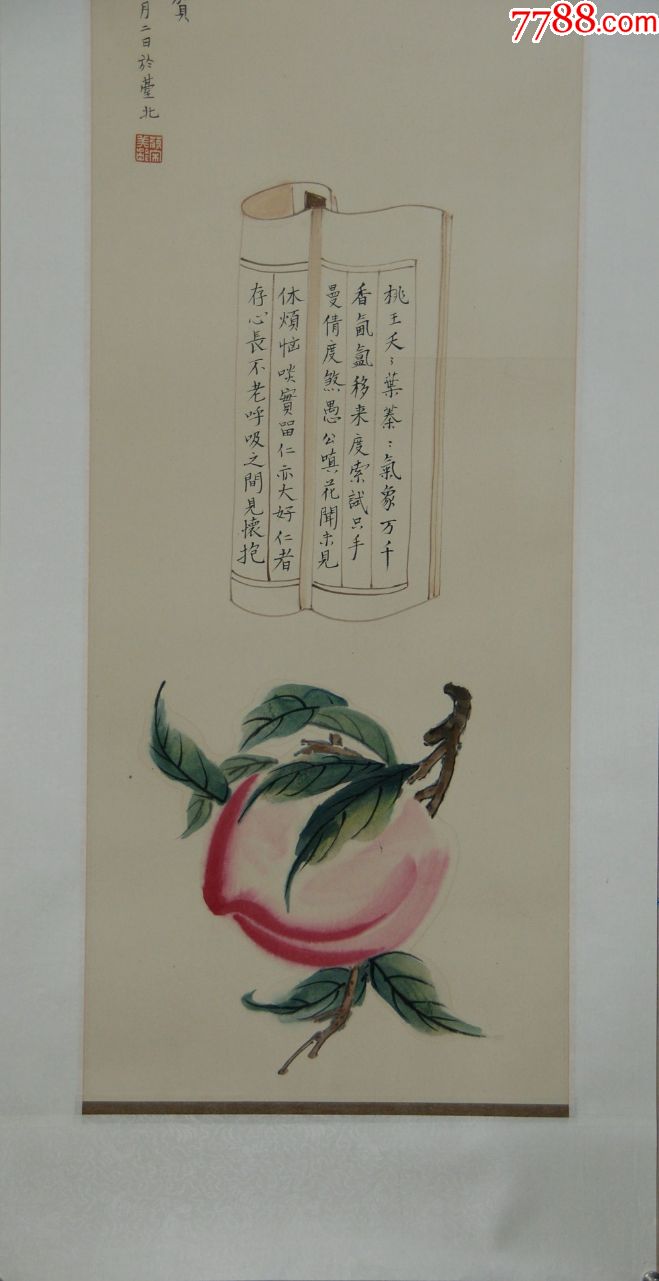 7788.com
賀
月二日於臺北
桃王夭〻葉蓁〻氣象万千
香氤氳移来度索試只手
曼倩度煞愚公嗔花聞未見
休煩恼啖實留仁亦大好仁者
存心長不老呼吸之間見懷抱